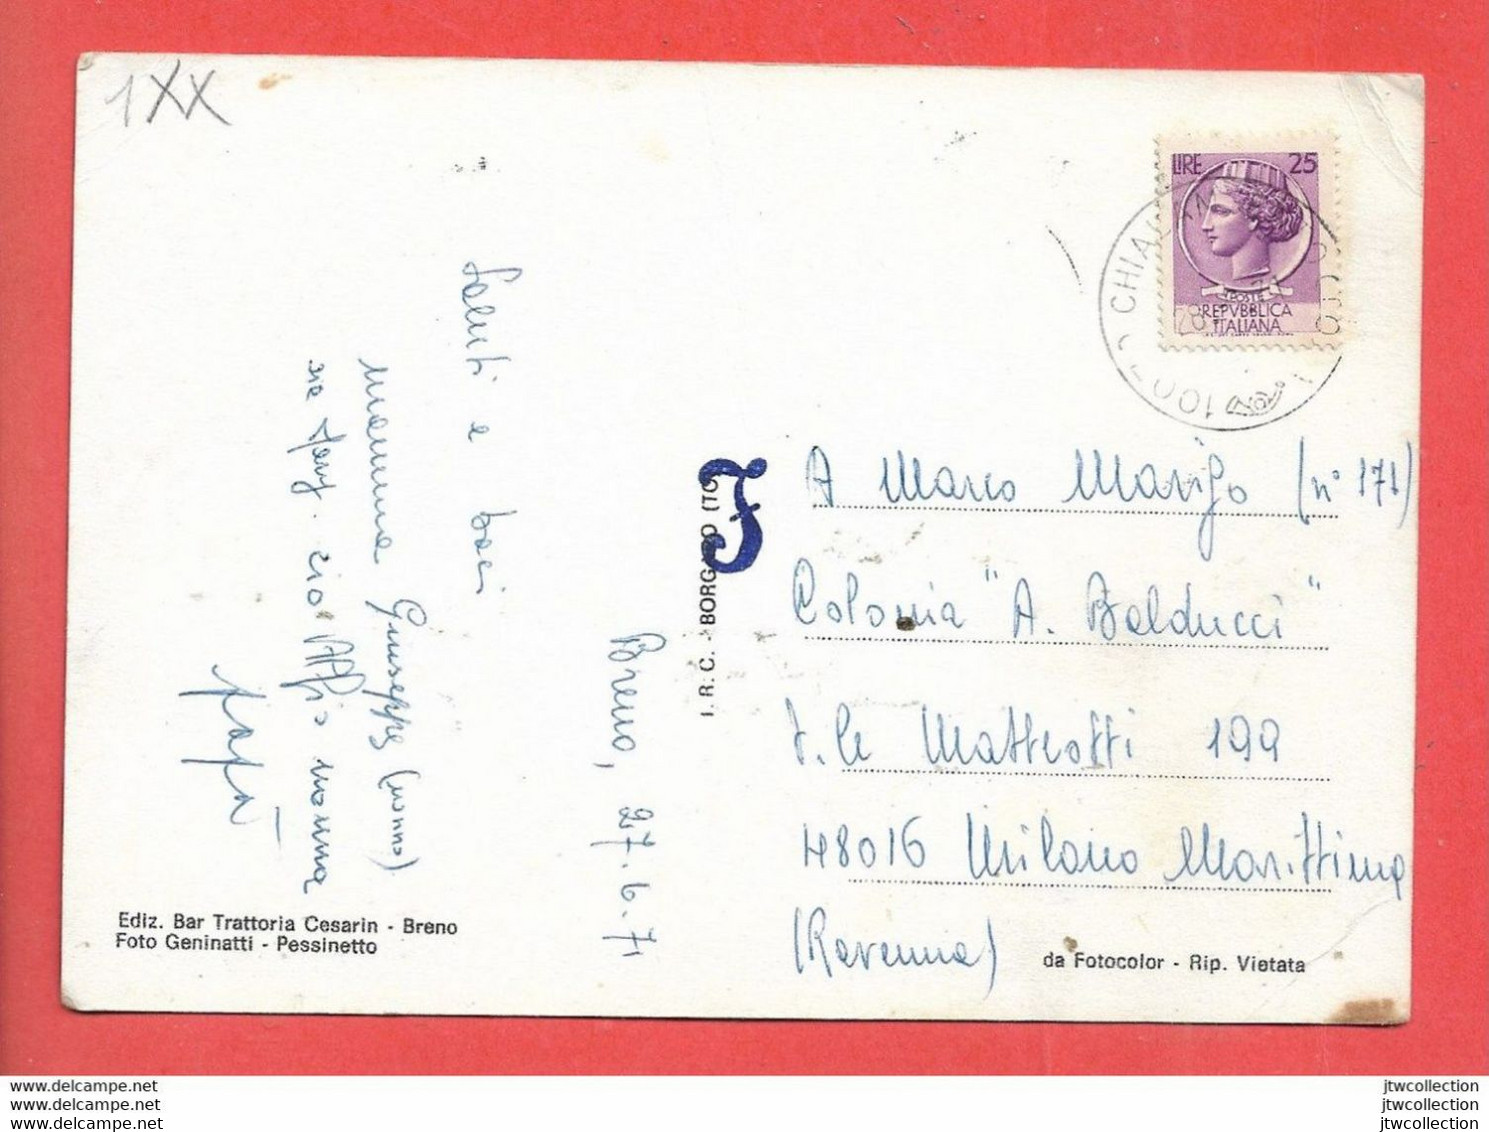 1XX
LIRE 25
POSTE
REPVBBLICA
ITALIANA
CHIA
100
Saluti e baci
mamma Giuseppe (nonno)
zio nonna
papà
Breno, 27.6.71
I. R. C. - BORGARO (TO)
A Marco Marigo (n° 171)
Colonia "A. Balducci"
V.le Matteotti 199
48016 Milano Marittima
(Ravenna)
Ediz. Bar Trattoria Cesarin - Breno
Foto Geninatti - Pessinetto
da Fotocolor - Rip. Vietata
es.delcampe.net
es.delcampe.net
www.delcampe.net
jtwcollection
jtwcollection
jtwcollection